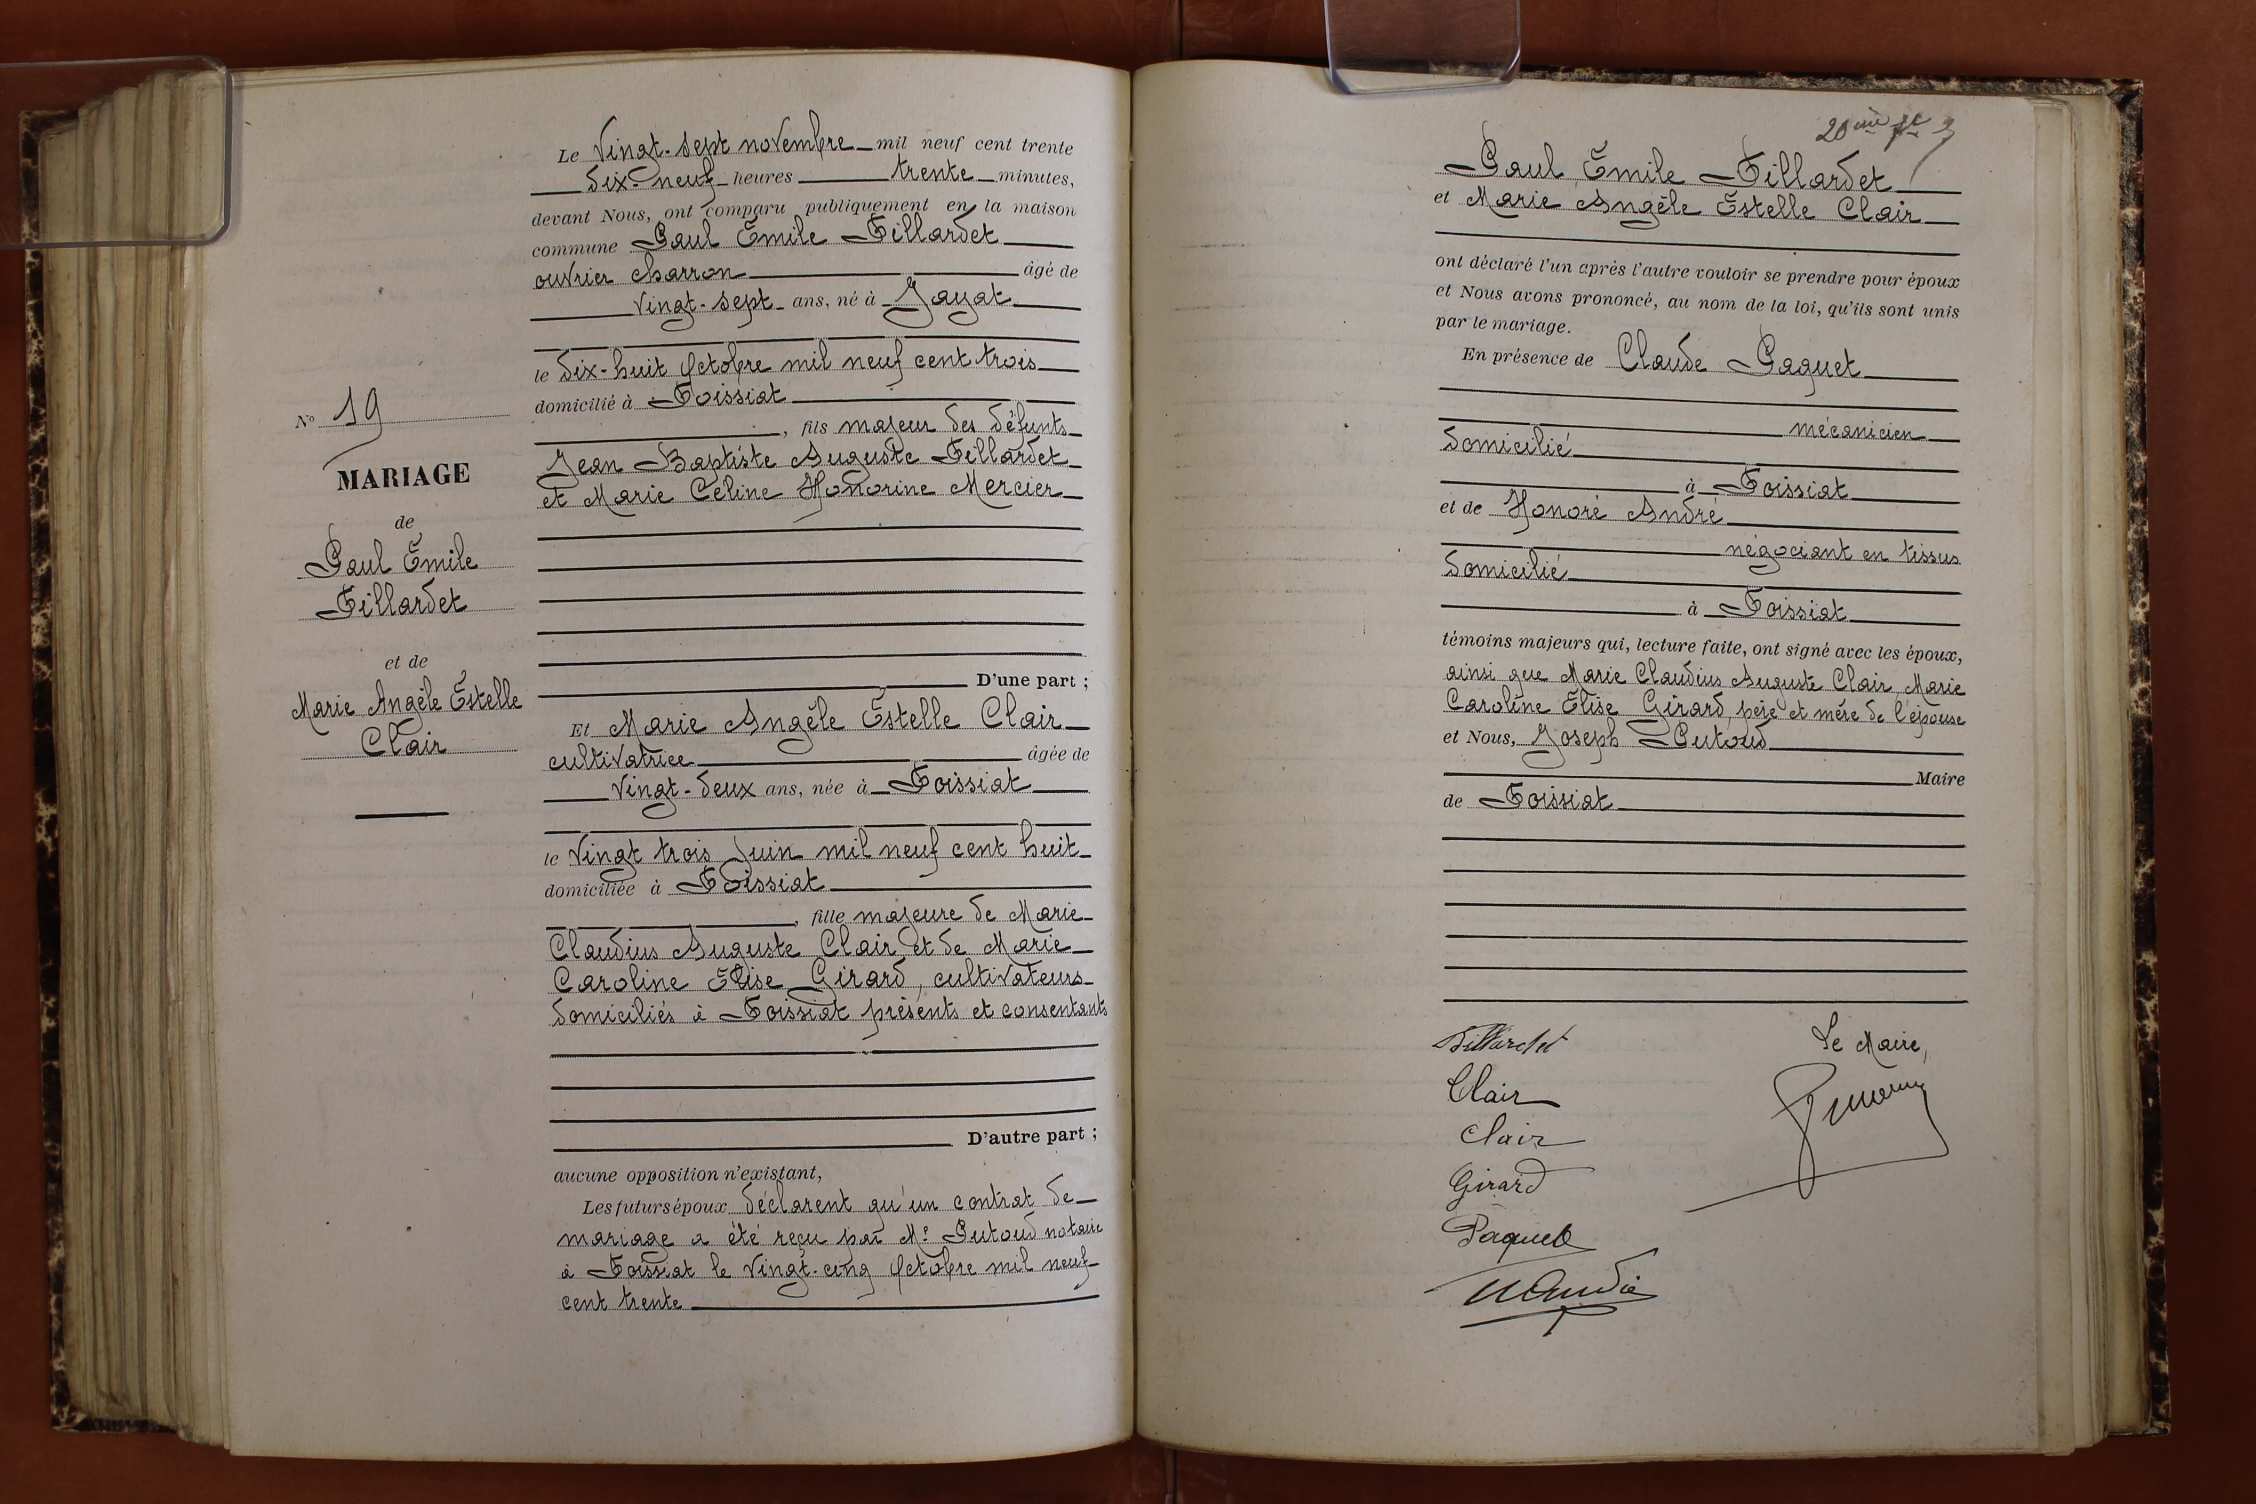 Le Vingt-sept novembre mil neuf cent trente
dix-neuf heures trente minutes,
devant Nous, ont comparu publiquement en la maison
commune Paul Émile Tillardet
ouvrier charron âgé de
vingt-sept ans, né à Jayat
le dix-huit octobre mil neuf cent trois
domicilié à Foissiat
, fils majeur des défunts
Jean Baptiste Auguste Tillardet
et Marie Céline Honorine Mercier
D'une part ;
Et Marie Angèle Estelle Clair
cultivatrice âgée de
vingt-deux ans, née à Foissiat
le vingt trois Juin mil neuf cent huit
domiciliée à Foissiat
, fille majeure de Marie
Claudius Auguste Clair et de Marie
Caroline Élise Girard, cultivateurs
domiciliés à Foissiat présents et consentants
D'autre part ;
aucune opposition n'existant,
Les futurs époux déclarent qu'un contrat de
mariage a été reçu par Me Putoud notaire
à Foissiat le vingt-cinq octobre mil neuf
cent trente
No 19
MARIAGE
de
Paul Émile
Tillardet
et de
Marie Angèle Estelle
Clair
20ème
Paul Émile Tillardet
et Marie Angèle Estelle Clair
ont déclaré l'un après l'autre vouloir se prendre pour époux
et Nous avons prononcé, au nom de la loi, qu'ils sont unis
par le mariage.
En présence de Claude Paquet
mécanicien
domicilié
à Foissiat
et de Honoré André
négociant en tissus
domicilié
à Foissiat
témoins majeurs qui, lecture faite, ont signé avec les époux,
ainsi que Marie Claudius Auguste Clair, Marie
Caroline Élise Girard, père et mère de l'épouse
et Nous, Joseph Putoud
Maire
de Foissiat
Tillardet
Clair
Clair
Girard
Paquet
Le Maire,